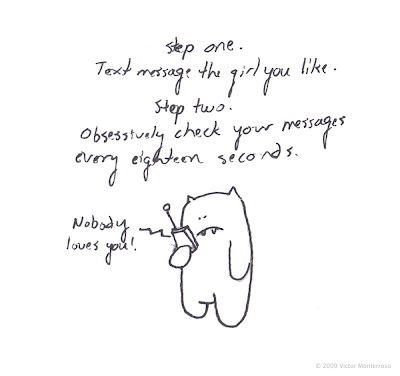 step one.
Text message the girl you like.
Step two.
Obsessively check your messages
every eighteen seconds.
Nobody
loves you!
© 2009 Victor Monterroso